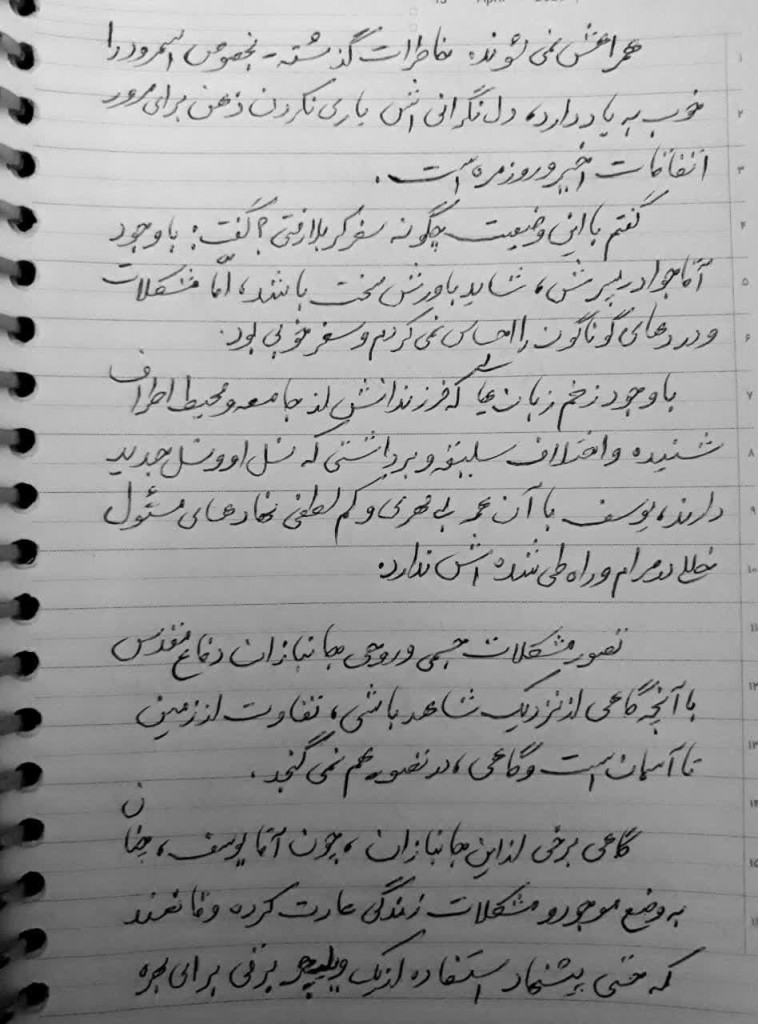 همراهش نمی‌شوند. خاطرات گذشته - بخصوص اسمرود را
خوب به یاد دارد، دل نگرانی اش یاری نکردن ذهن برای مرور
اتفاقات اخیر و روزمره است.
گفتم با این وضعیت چگونه سفر کربلا رفتی؟ گفت: با وجود
آقا جواد پسرش، شاید باورش سخت باشد، امّا مشکلات
و دردهای گوناگون را احساس نمی کردم و سفر خوبی بود.
با وجود زخم زبان هایی که فرزندانش از جامعه و محیط اطراف
شنیده و اختلاف سلیقه و برداشتی که نسل او و نسل جدید
دارند، یوسف با آن همه بی مهری و کم لطفی نهادهای مسئول
خللی در مرام و راه طی شده اش ندارد.
تصور مشکلات جسمی و روحی جانبازان دفاع مقدس
با آنچه گاهی از نزدیک شاهد باشی، تفاوت از زمین
تا آسمان است و گاهی، در تصور هم نمی گنجد.
گاهی برخی از این جانبازان، چون آقا یوسف، چنان
به وضع موجود و مشکلات زندگی عادت کرده و قانعند
که حتی پیشنهاد استفاده از یک ویلچر برقی برای بهره